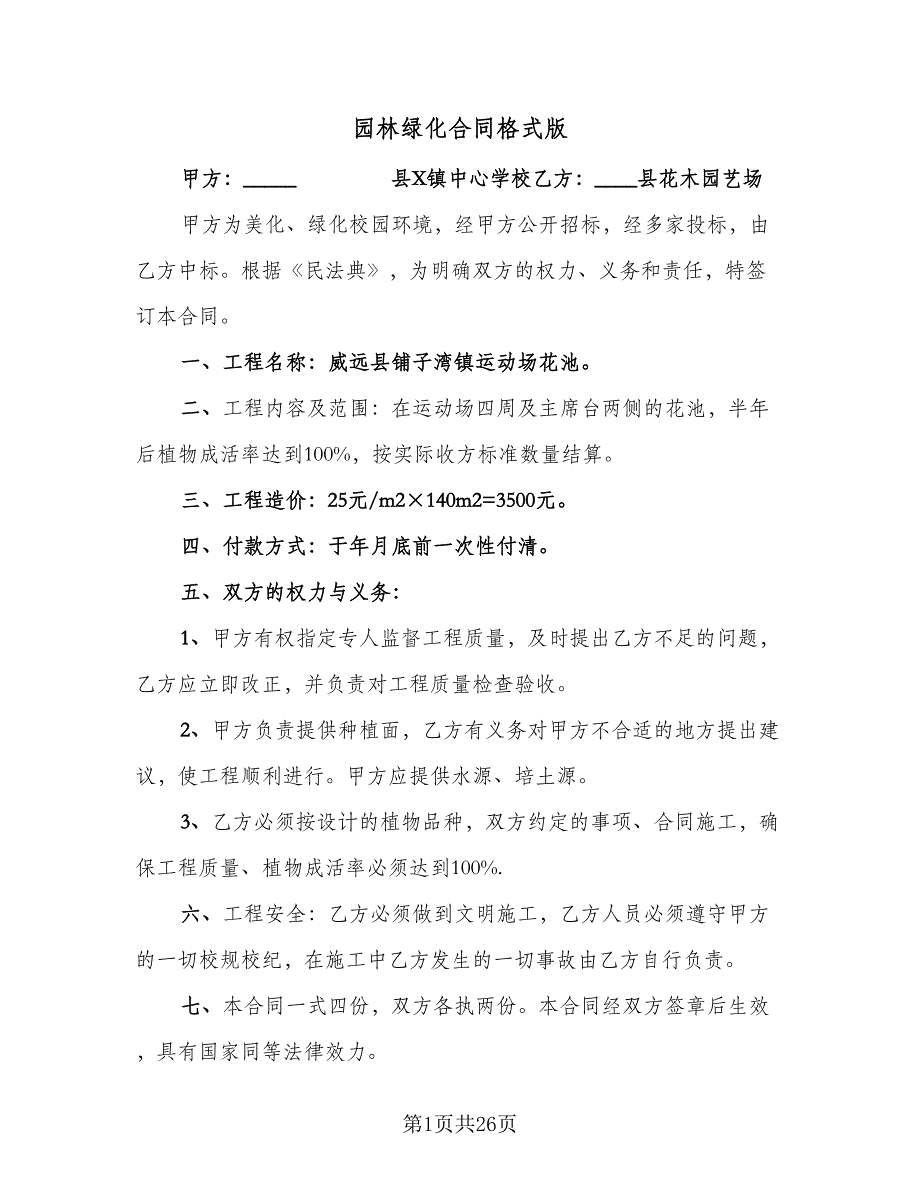 园林绿化合同格式版
甲方：_____ 县X镇中心学校乙方：____县花木园艺场
甲方为美化、绿化校园环境，经甲方公开招标，经多家投标，由
乙方中标。根据《民法典》，为明确双方的权力、义务和责任，特签
订本合同。
一、工程名称：威远县铺子湾镇运动场花池。
二、工程内容及范围：在运动场四周及主席台两侧的花池，半年
后植物成活率达到100%，按实际收方标准数量结算。
三、工程造价：25元/m2×140m2=3500元。
四、付款方式：于年月底前一次性付清。
五、双方的权力与义务：
1、甲方有权指定专人监督工程质量，及时提出乙方不足的问题，
乙方应立即改正，并负责对工程质量检查验收。
2、甲方负责提供种植面，乙方有义务对甲方不合适的地方提出建
议，使工程顺利进行。甲方应提供水源、培土源。
3、乙方必须按设计的植物品种，双方约定的事项、合同施工，确
保工程质量、植物成活率必须达到100%.
六、工程安全：乙方必须做到文明施工，乙方人员必须遵守甲方
的一切校规校纪，在施工中乙方发生的一切事故由乙方自行负责。
七、本合同一式四份，双方各执两份。本合同经双方签章后生效
，具有国家同等法律效力。
第1页共26页